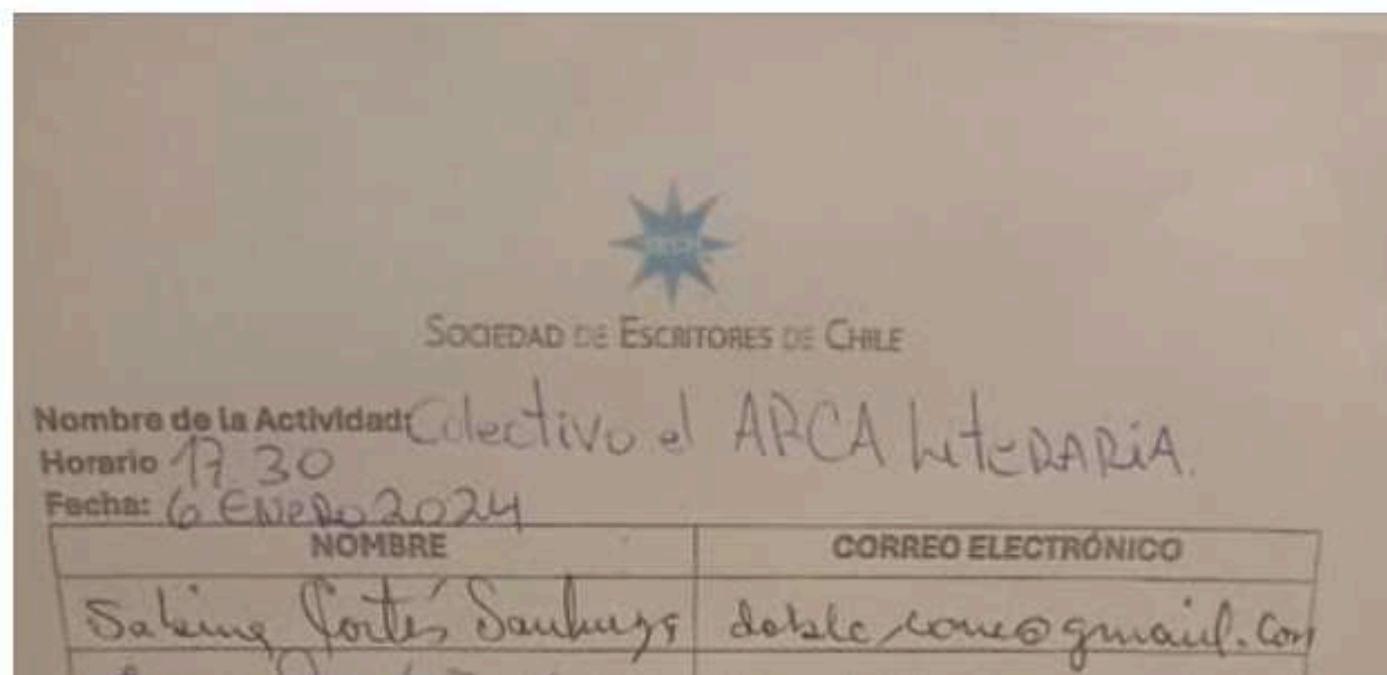 SECH
SOCIEDAD DE ESCRITORES DE CHILE
Nombre de la Actividad: Colectivo el ARCA LiteRARiA.
Horario 17 30
Fecha: 6 ENERO 2024
NOMBRE CORREO ELECTRÓNICO
Sabina Cortés